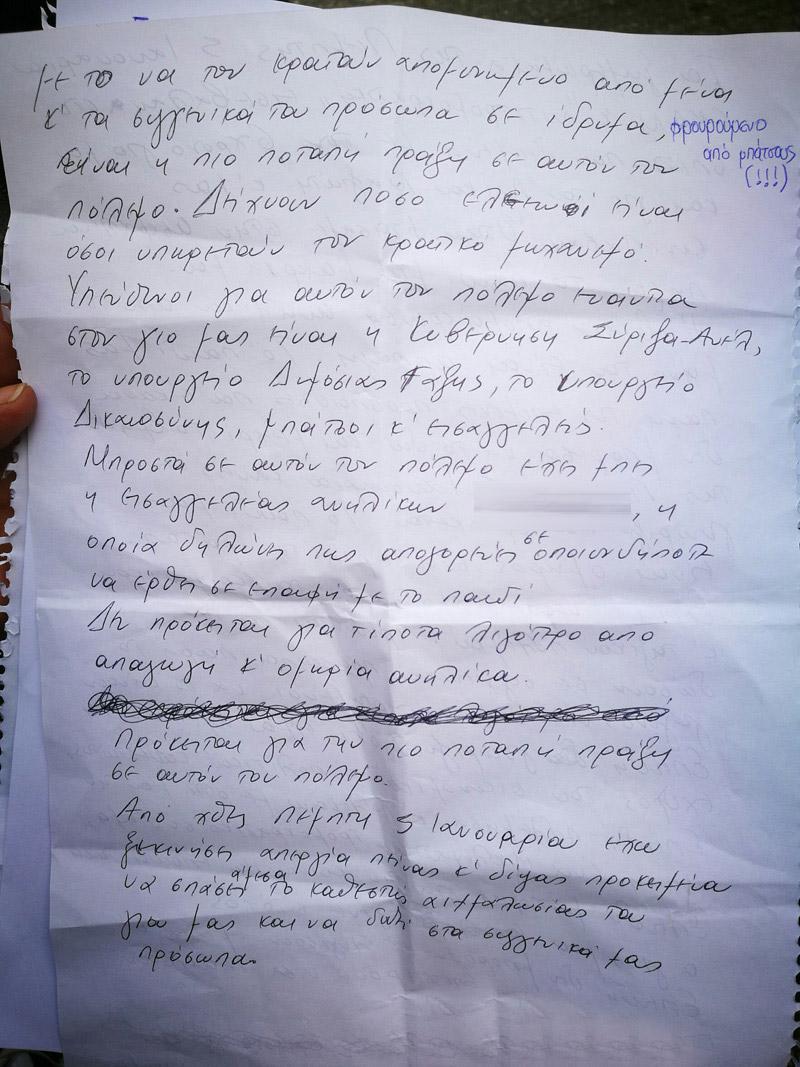 με το να τον κρατούν απομονωμένο από μένα
κ' τα συγγενικά του πρόσωπα σε ίδρυμα, φρουρούμενο
από μπάτσους
(!!!)
είναι η πιο ποταπή πράξη σε αυτόν τον
πόλεμο. Δείχνουν πόσο ελεεινοί είναι
όσοι υπηρετούν τον κρατικό μηχανισμό.
Υπεύθυνοι για αυτόν τον πόλεμο ενάντια
στον γιο μας είναι η Κυβέρνηση Σύριζα-Ανέλ,
το υπουργείο Δημόσιας Τάξης, το υπουργείο
Δικαιοσύνης, μπάτσοι κ' εισαγγελείς.
Μπροστά σε αυτόν τον πόλεμο έχει μπει
η εισαγγελέας ανηλίκων , η
οποία δηλώνει πως απαγορεύει σε οποιονδήποτε
να έρθει σε επαφή με το παιδί
Δεν πρόκειται για τίποτα λιγότερο από
απαγωγή κ' ομηρία ανηλίκα.
Πρόκειται για την πιο ποταπή πράξη
σε αυτόν τον πόλεμο.
Από χθες Πέμπτη 5 Ιανουαρίου έχω
ξεκινήσει απεργία πείνας κ' δίψας προκειμένου
να σπάσει άμεσα το καθεστώς αιχμαλωσίας του
γιου μας και να δοθεί στα συγγενικά μας
πρόσωπα.